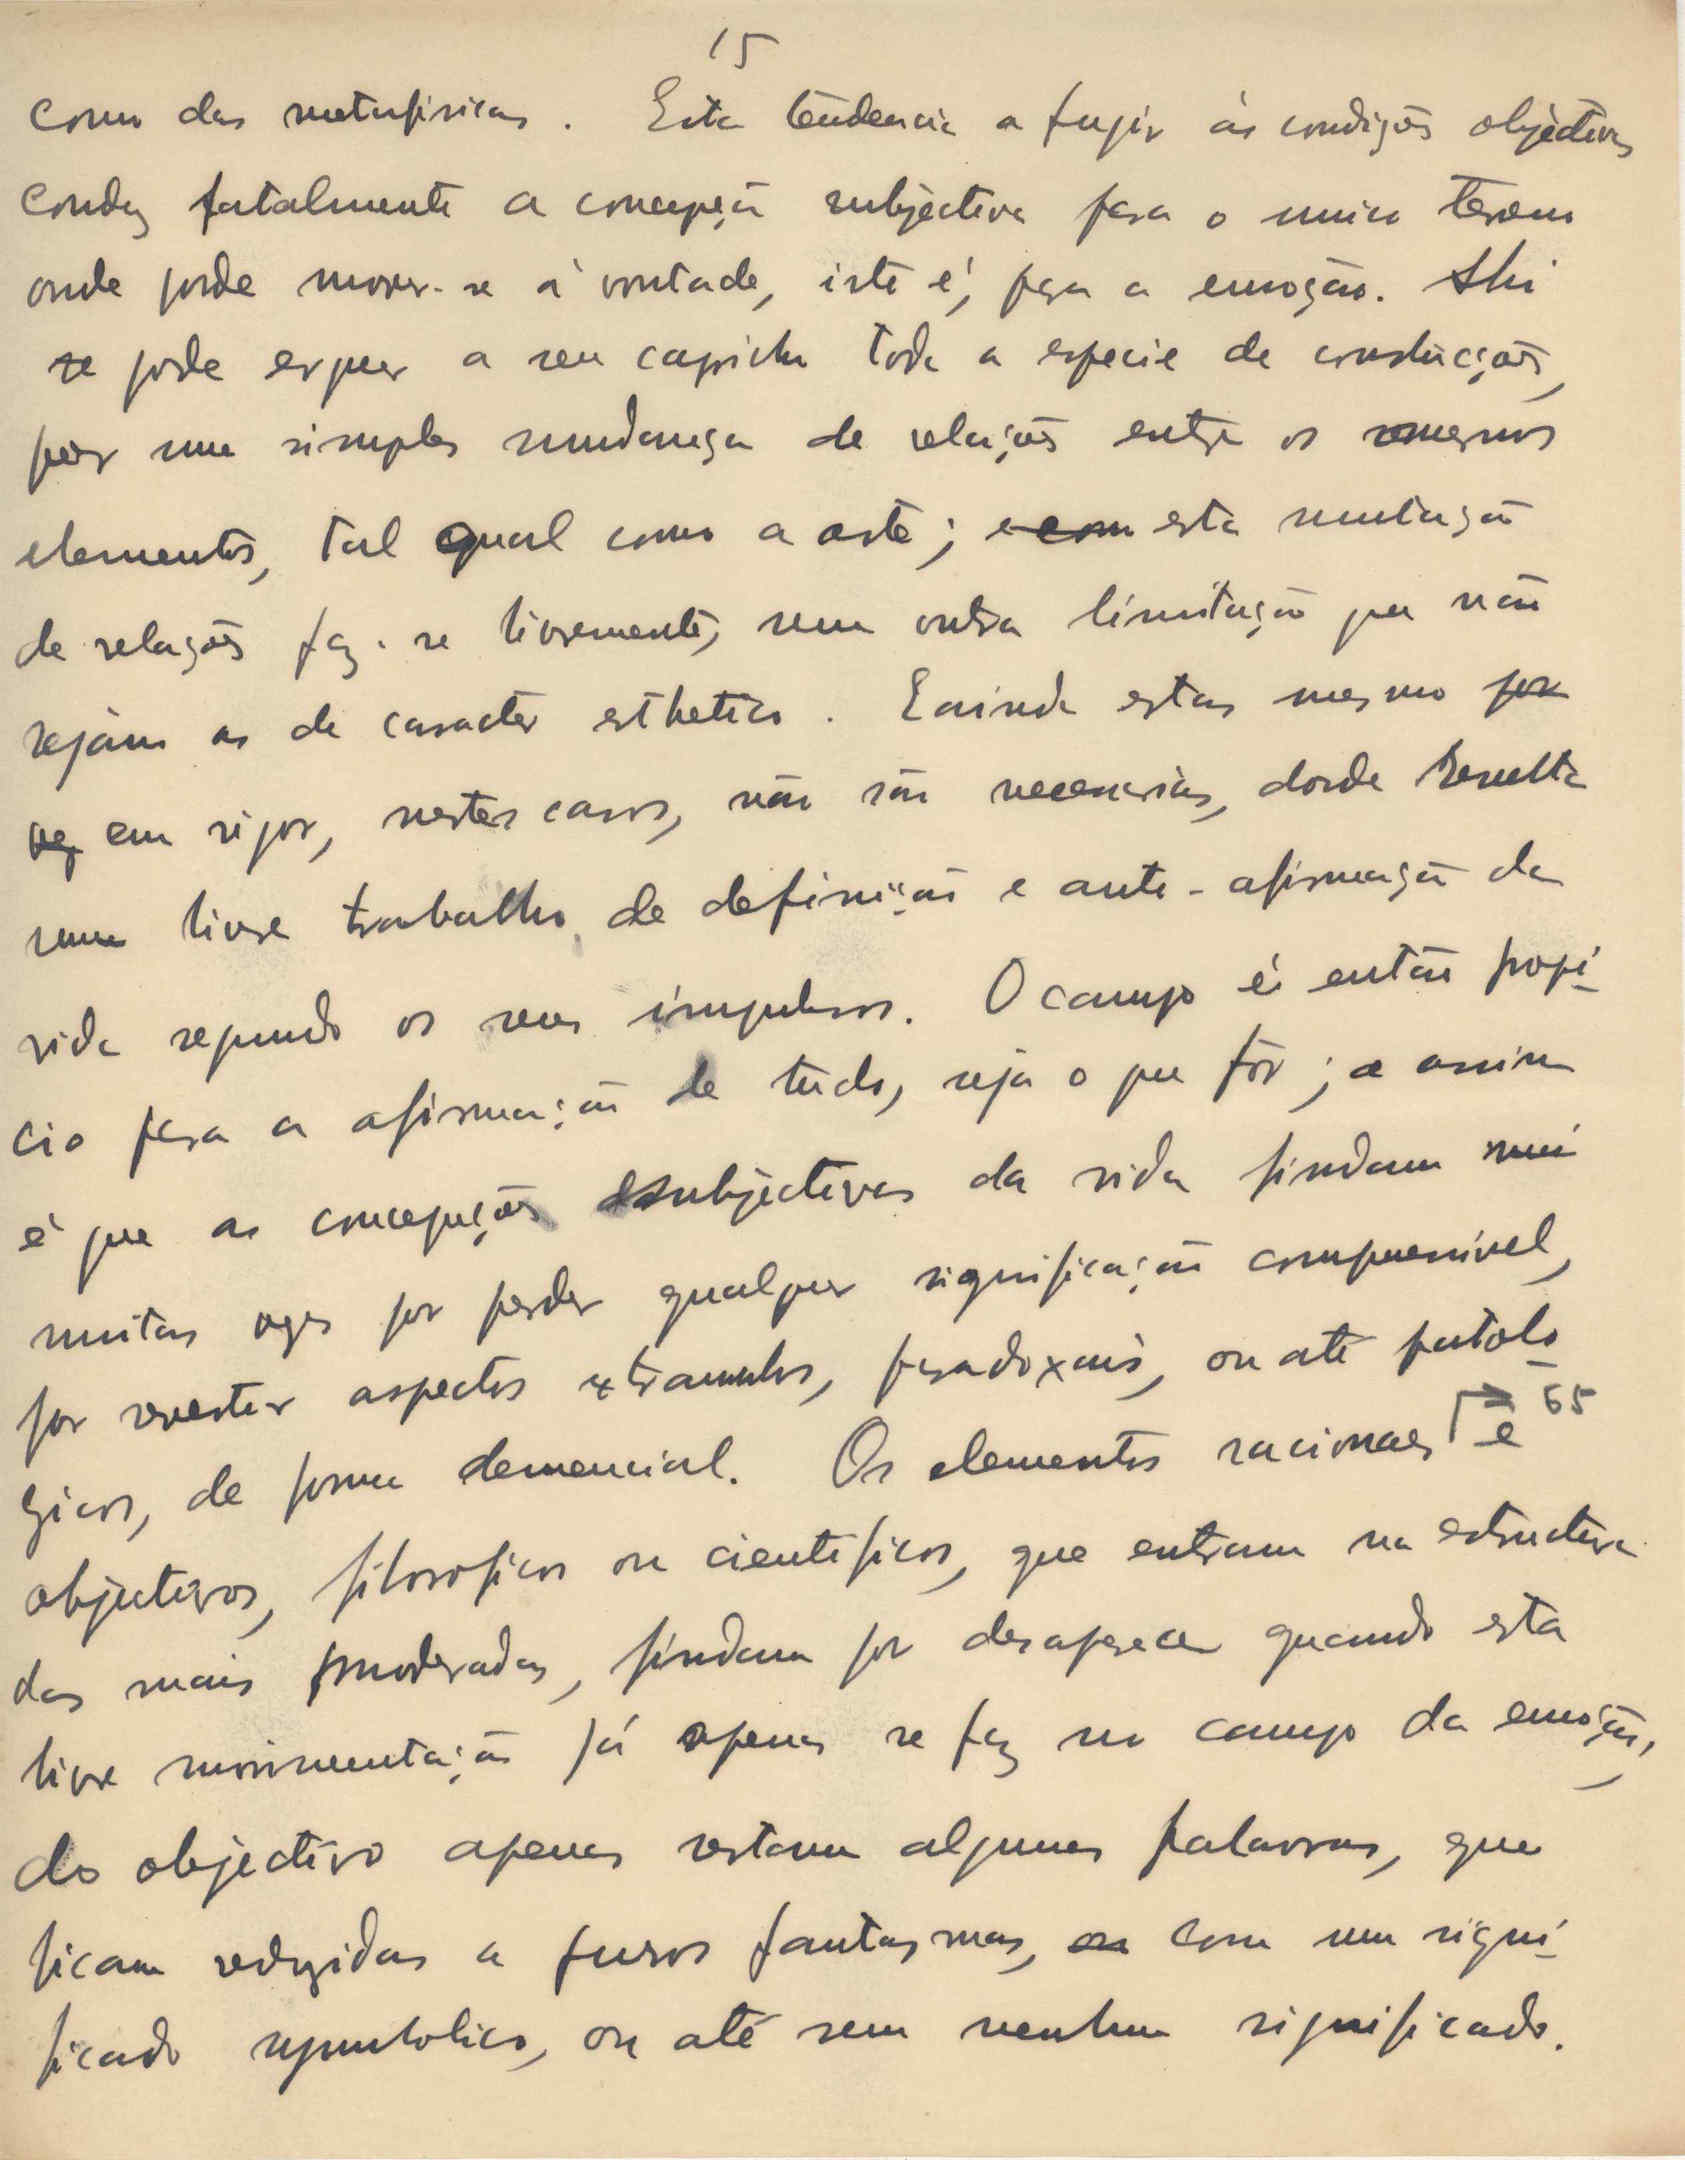 15
como das metafisicas. Esta tendencia a fugir ás condições objectivas
conduz fatalmente a concepção subjectiva para o unico terreno
onde póde mover-se á vontade, isto é, para a emoção. Ahi
se póde erguer a seu capricho toda a especie de construcções,
por uma simples mudança de relações entre os mesmos
elementos, tal qual como a arte; e com esta mutação
de relações faz-se livremente, sem outra limitação que não
sejam as de caracter esthetico. E ainda estas mesmo por
vez em rigor, nestes casos, não são necessarias, donde resulta
um livre trabalho de definição e auto-afirmação da
vida segundo os seus impulsos. O campo é então propi-
cio para a afirmação de tudo, seja o que fôr; e assim
é que as concepções subjectivas da vida findam mui
muitas vezes por perder qualquer significação compreensivel,
por revestir aspectos extranhos, paradoxais, ou até patolo-
gicos, de forma demencial. Os elementos racionaes e 65
objectivos, filosoficos ou cientificos, que entram na estructura
das mais moderadas, findam por desaparecer quando esta
livre movimentação já apenas se faz no campo da emoção,
do objectivo apenas restam algumas palavras, que
ficam reduzidas a puros fantasmas, ou com um signi-
ficado symbolico, ou até sem nenhum significado.